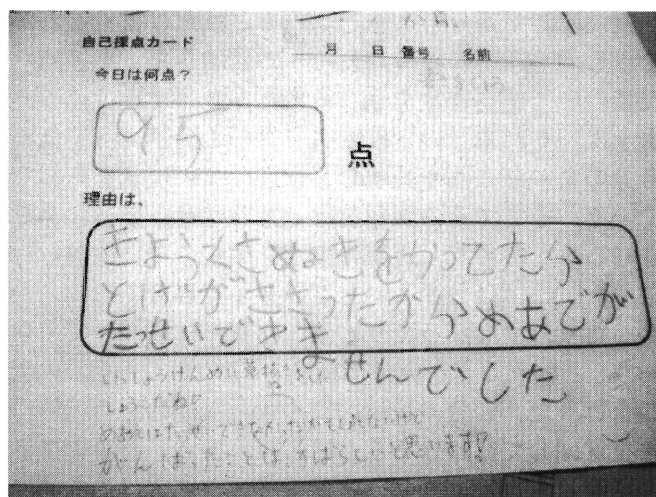 自己採点カード
月 日 番号 名前
今日は何点？
95
点
理由は、
きょうくさぬきをやってたら
とげがささったからめあてが
たっせいできま
せんでした
いっしょうけんめい草抜きをした
しょうこだね!!
めあてはたっせいできなかったかもしれないけど
がんばったことは、すばらしいと思います!!